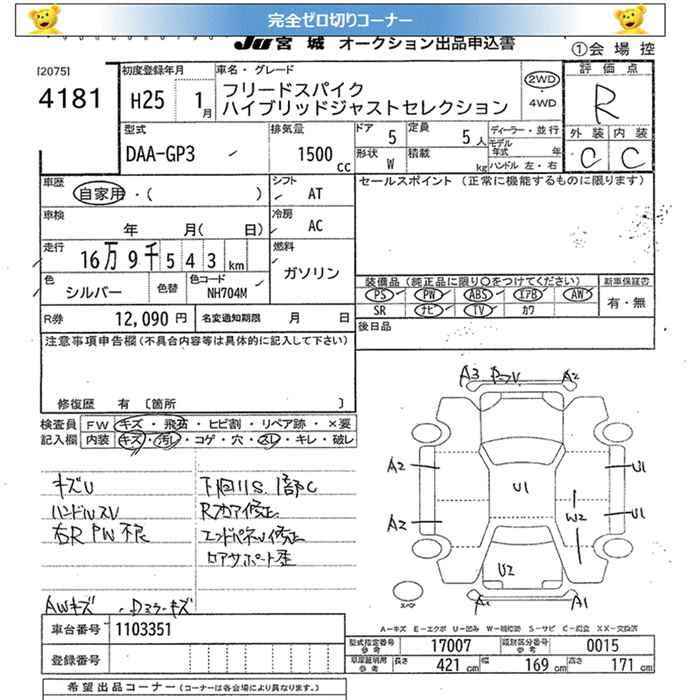 完全ゼロ切りコーナー
JU宮城 オークション出品申込書
①会場控
[2075]
4181
初度登録年月
H25 1月
車名・グレード
フリードスパイク
ハイブリッドジャストセレクション
2WD
・4WD
評価点
R
外装 内装
C C
型式
DAA-GP3
排気量
1500 cc
ドア 5
定員 5人
形状 W
積載 kg
ディーラー・並行
モデル年式 年
ハンドル 左・右
車歴
自家用・( )
シフト
AT
車検
年 月( 日)
冷房
AC
走行
16万9千543 km
燃料
ガソリン
色
シルバー
色替
色コード
NH704M
R券 12,090円
名変通知期限 月 日
セールスポイント (正常に機能するものに限ります)
装備品(純正品に限り○をつけてください)
PS PW ABS エアB AW
SR ナビ TV カワ
新車保証書
有・無
後日品
注意事項申告欄(不具合内容等は具体的に記入して下さい)
修復歴 有 〔箇所 〕
検査員記入欄
FW キズ・飛石・ヒビ割・リペア跡・×要
内装 キズ・汚レ・コゲ・穴・スレ・キレ・破レ
キズU
ハンドルスレ
右R PW不良
下回りS、1部C
Rフロア修正
エンドパネル修正
ロアサポート歪
AWキズ・Dミラーキズ
A3 A2
A2 U1
U1
A2 W2 U1
U2
A1 A1
スペア
A－キズ E－エクボ U－凹み W－補修跡 S－サビ C－腐食 XX－交換済
車台番号 1103351
登録番号
型式指定番号 参考 17007
類別区分番号 参考 0015
車庫証明用 参考
長さ 421 cm
幅 169 cm
高さ 171 cm
希望出品コーナー (コーナーは各会場により異なります。)